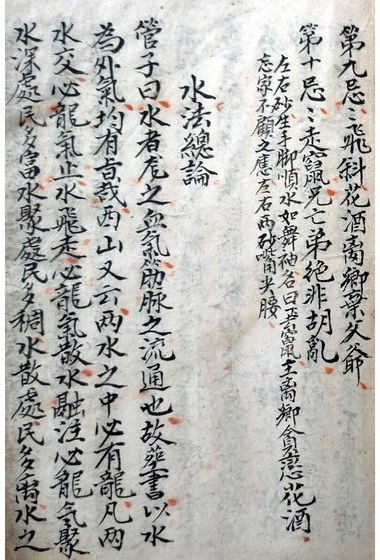 第九忌〻飛斜花酒离鄉棄父爺
第十忌〻走竄兄亡弟絕非胡乱
左右砂生手脚順水如舞袖名曰竄主离鄉貪戀花酒
忘家不顧之應左右两砂嘴尖腰
水法總論
管子曰水者龙之血氣筋脉之流通也故葬書以水
為外氣均有旨哉西山又云两水之中必有龍凡两
水交必龍氣止水飛走必龍氣散水融注必龍氣聚
水深處民多富水聚處民多稠水散處民多离水之